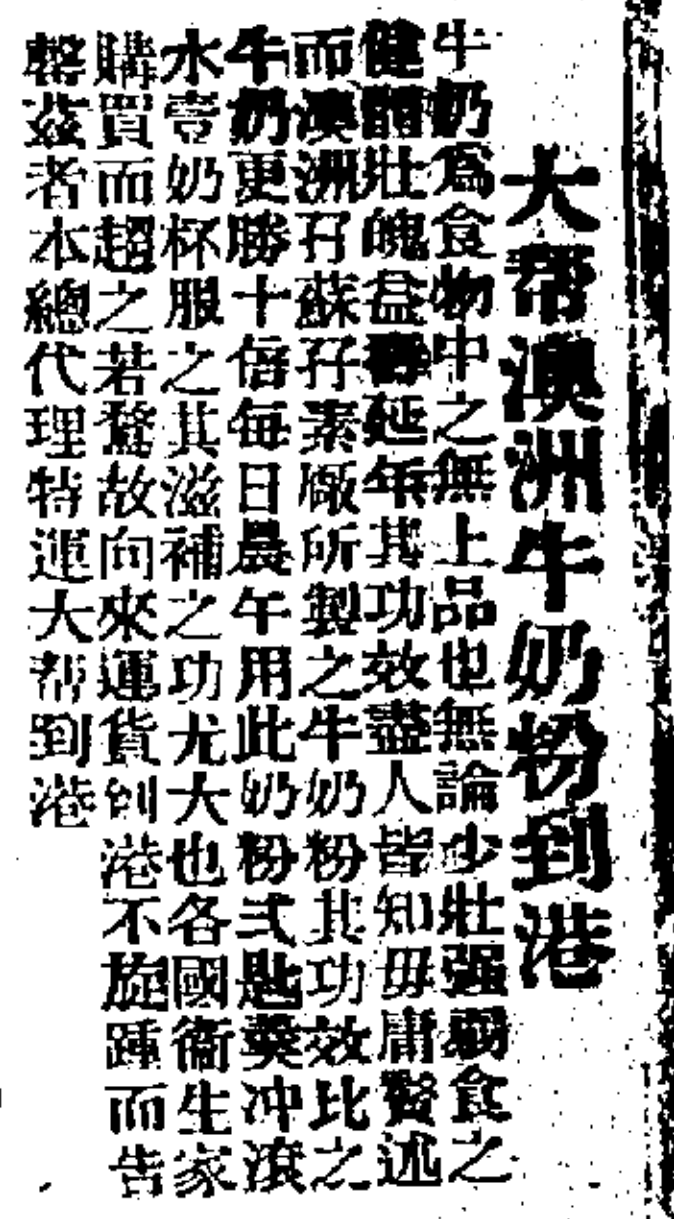 大帮澳洲牛奶粉到港
牛奶爲食物中之無上品也無論少壯强弱食之
健體壯魄益壽延年其功效盡人皆知毋庸贅述
而澳洲孖蘇孖素廠所製之牛奶粉其功效比之
牛奶更勝十倍每日晨午用此奶粉弍匙羹冲滾
水壹奶杯服之其滋補之功尤大也各國衞生家
購買而趨之若鶩故向來運貨到港不旋踵而告
罄茲者本總代理特運大帮到港